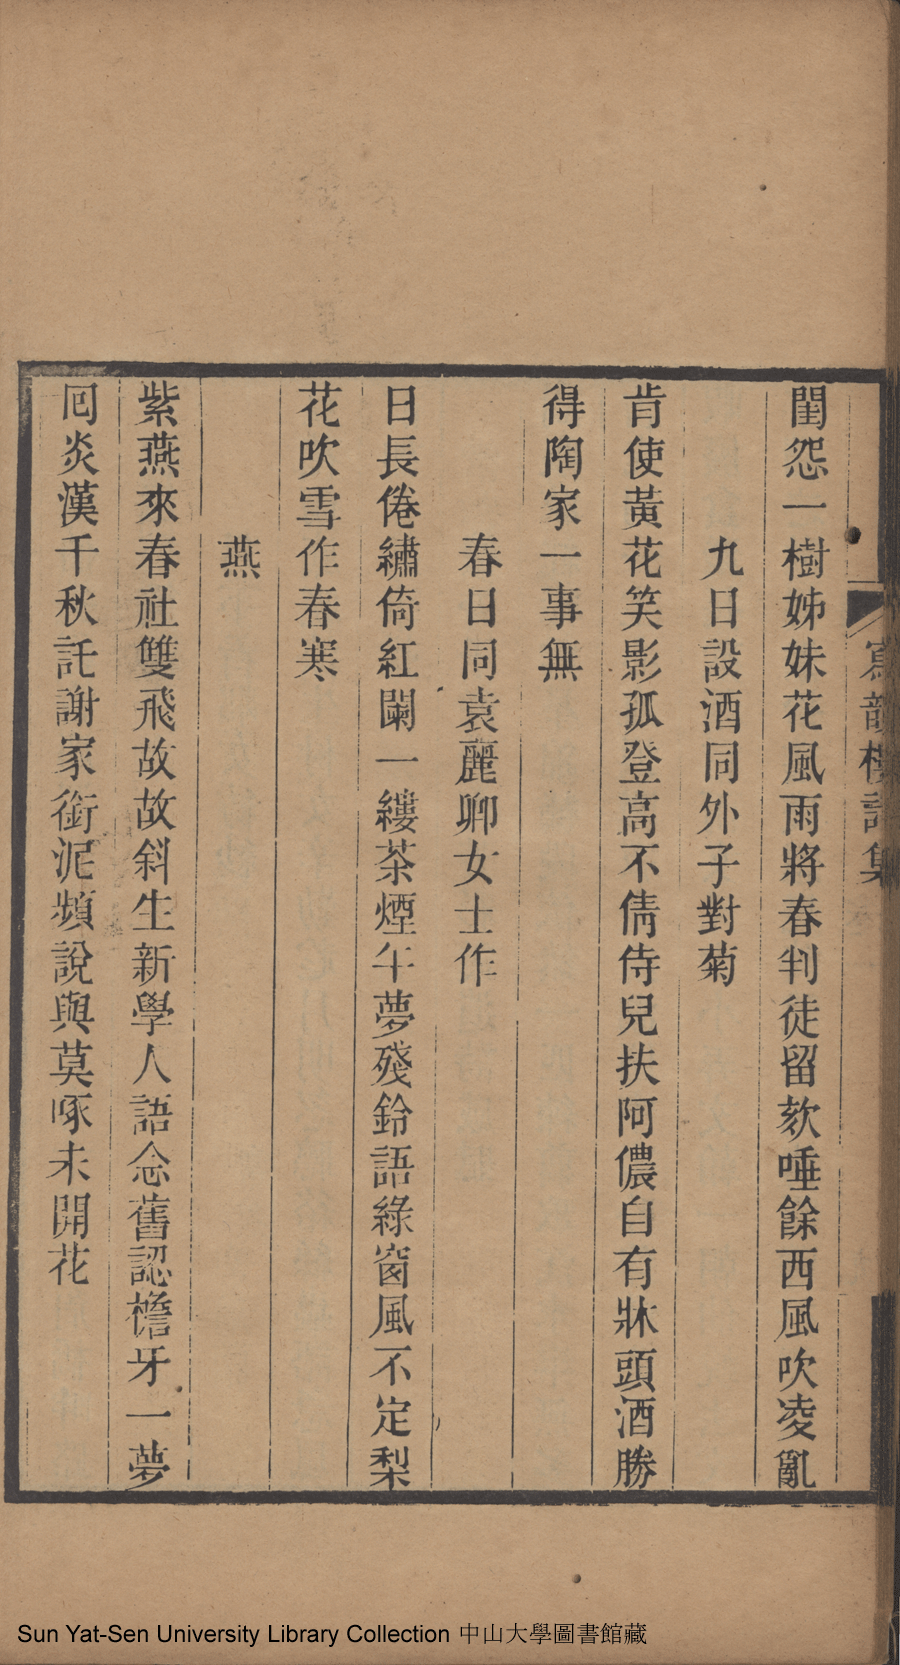 寫韻樓詩集
閨怨一樹姊妹花風雨將春判徒留欬唾餘西風吹凌亂
九日設酒同外子對菊
肯使黃花笑影孤登高不倩侍兒扶阿儂自有牀頭酒勝
得陶家一事無
春日同袁麗卿女士作
日長倦繡倚紅闌一縷茶煙午夢殘鈴語綠窗風不定梨
花吹雪作春寒
燕
紫燕來春社雙飛故故斜生新學人語念舊認檐牙一夢
回炎漢千秋託謝家銜泥頻說與莫啄未開花
Sun Yat-Sen University Library Collection 中山大學圖書館藏